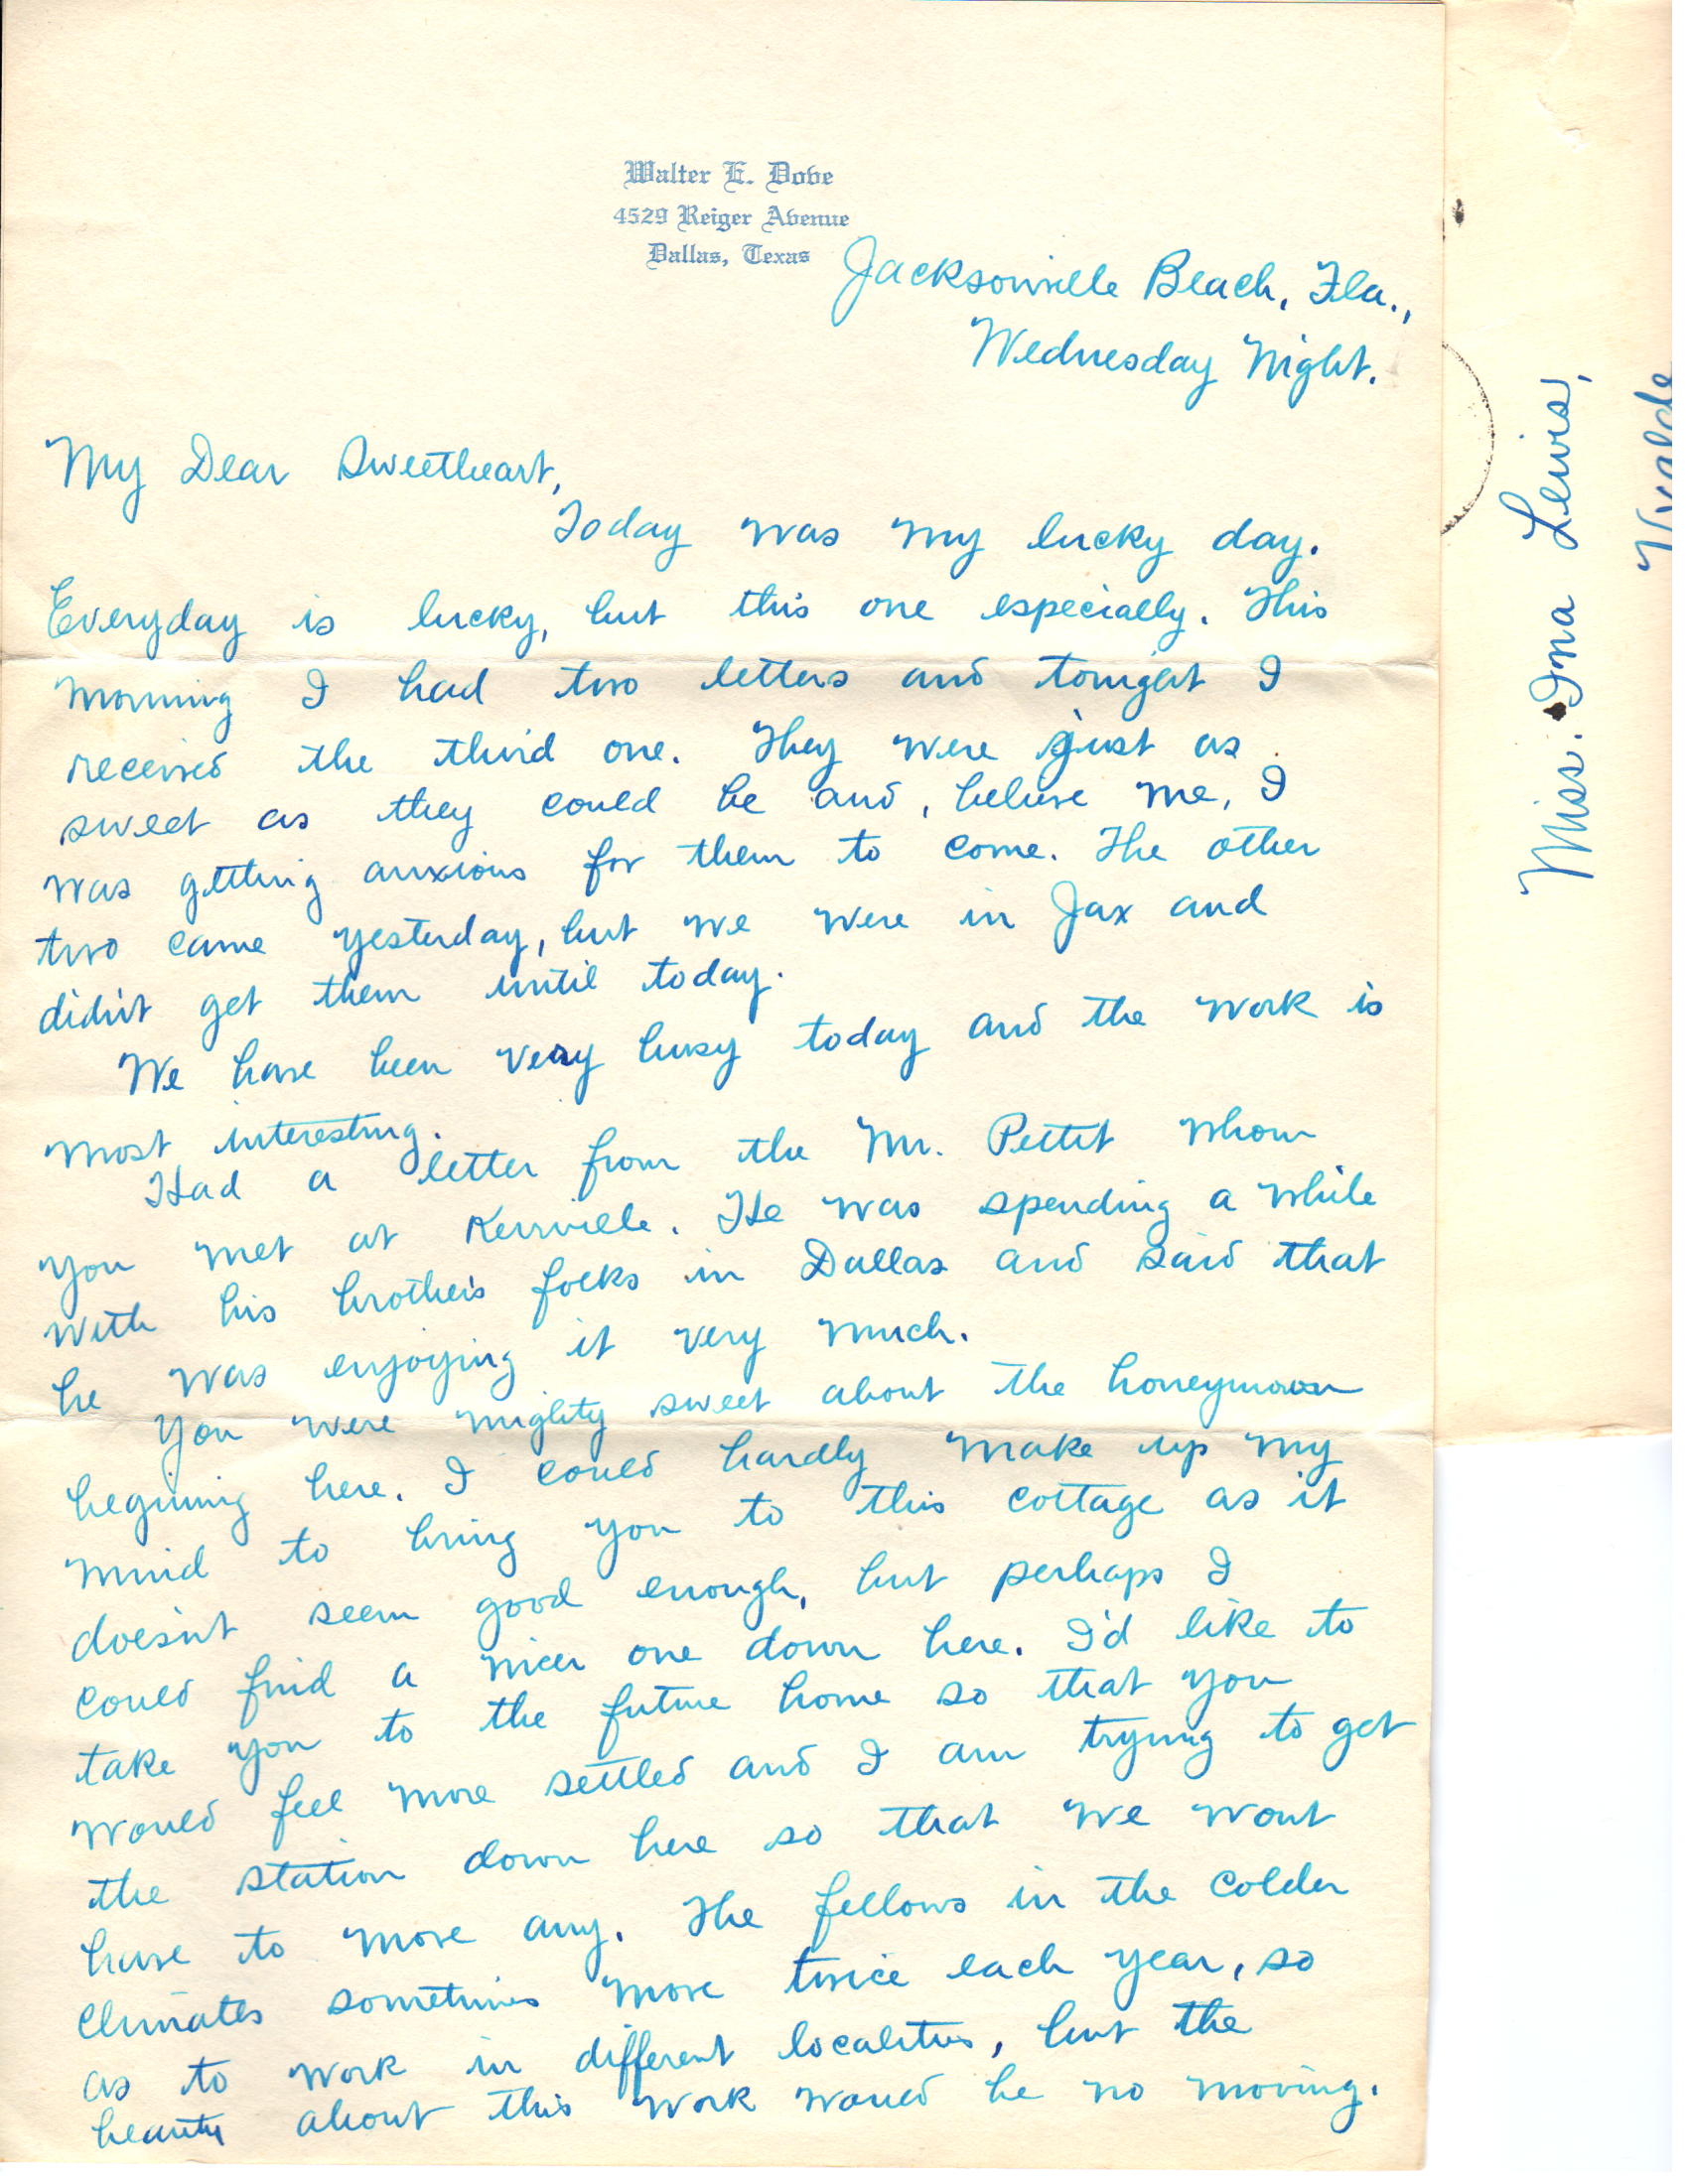 Walter E. Dove
4529 Reiger Avenue
Dallas, Texas
Jacksonville Beach, Fla.,
Wednesday Night.
My Dear Sweetheart,
Today was my lucky day.
Everyday is lucky, but this one especially. This
morning I had two letters and tonight I
received the third one. They were just as
sweet as they could be and, believe me, I
was getting anxious for them to come. The other
two came yesterday, but we were in Jax and
didn't get them until today.
We have been very busy today and the work is
most interesting.
Had a letter from the Mr. Pettit whom
you met at Kerrville. He was spending a while
with his brother's folks in Dallas and said that
he was enjoying it very much.
You were mighty sweet about the honeymoon
begining here. I could hardly make up my
mind to bring you to this cottage as it
doesn't seem good enough, but perhaps I
could find a nicer one down here. I'd like to
take you to the future home so that you
would feel more settled and I am trying to get
the station down here so that we wont
have to move any. The fellows in the colder
climates sometimes move twice each year, so
as to work in different localities, but the
beauty about this work would be no moving.
Miss. Ina Lewis,